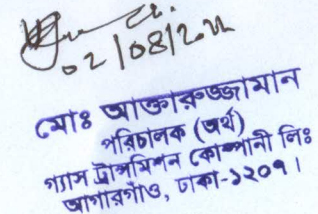 02/08/2011
মোঃ আক্তারুজ্জামান
পরিচালক (অর্থ)
গ্যাস ট্রান্সমিশন কোম্পানী লিঃ
আগারগাঁও, ঢাকা-১২০৭।